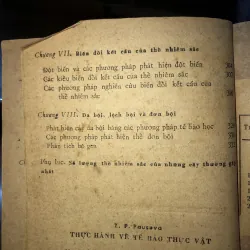 Chương VII. Biến đổi kết cấu của thể nhiễm sắc
Đột biến và các phương pháp phát hiện đột biến
Các kiểu biến đổi kết cấu của thể nhiễm sắc
Các phương pháp nghiên cứu biến đổi kết cấu của
thể nhiễm sắc
Chương VIII. Đa bội, lệch bội và đơn bội
Phát hiện các đa bội bằng các phương pháp tế bào học
Các thể đơn bội
Phân tích bộ gen
Phụ lục. Số lượng thể nhiễm sắc của những cây thường
nhất
THỰC HÀNH VỀ TẾ BÀO THỰC VẬT